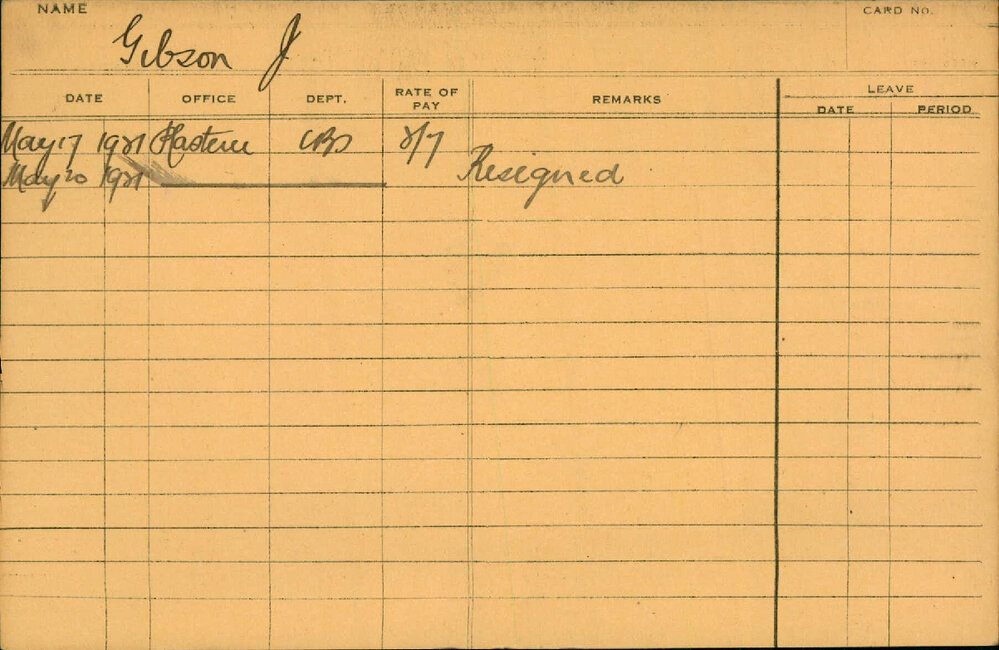 NAME CARD No.
Gibson J
DATE OFFICE DEPT. RATE OF PAY REMARKS LEAVE
DATE PERIOD
May 17 1921 8/7
May 20 1921 Resigned